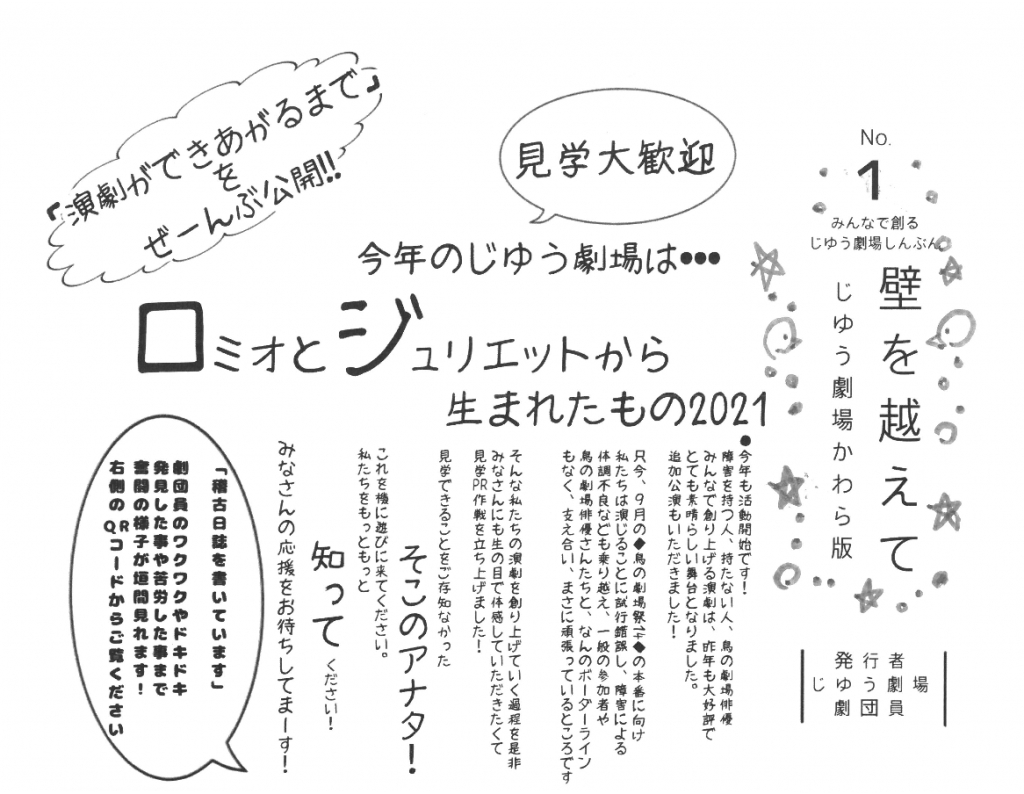 No.
1
みんなで創る
じゆう劇場しんぶん
壁を越えて
じゆう劇場かわら版
発行者
じゆう劇場
劇団員
見学大歓迎
『演劇ができあがるまで』
を
ぜーんぶ公開!!
今年のじゆう劇場は•••
ロミオとジュリエットから
生まれたもの2021
●今年も活動開始です！
障害を持つ人、持たない人、鳥の劇場俳優
みんなで創り上げる演劇は、昨年も大好評で
とても素晴らしい舞台となりました。
追加公演もいただきました！
只今、9月の◆鳥の劇場祭14◆の本番に向け
私たちは演じることに試行錯誤し、障害による
体調不良なども乗り越え、一般の参加者や
鳥の劇場俳優さんたちと、なんのボーダーライン
もなく、支え合い、まさに頑張っているところです
そんな私たちの演劇を創り上げていく過程を是非
みなさんにも生の目で体感していただきたくて
見学PR作戦を立ち上げました！
見学できることをご存知なかった
そこのアナタ！
これを機に遊びに来てください。
私たちをもっともっと
知ってください！
みなさんの応援をお待ちしてまーす！
「稽古日誌を書いています」
劇団員のワクワクやドキドキ
発見した事や苦労した事まで
奮闘の様子が垣間見れます！
右側のQRコードからご覧ください